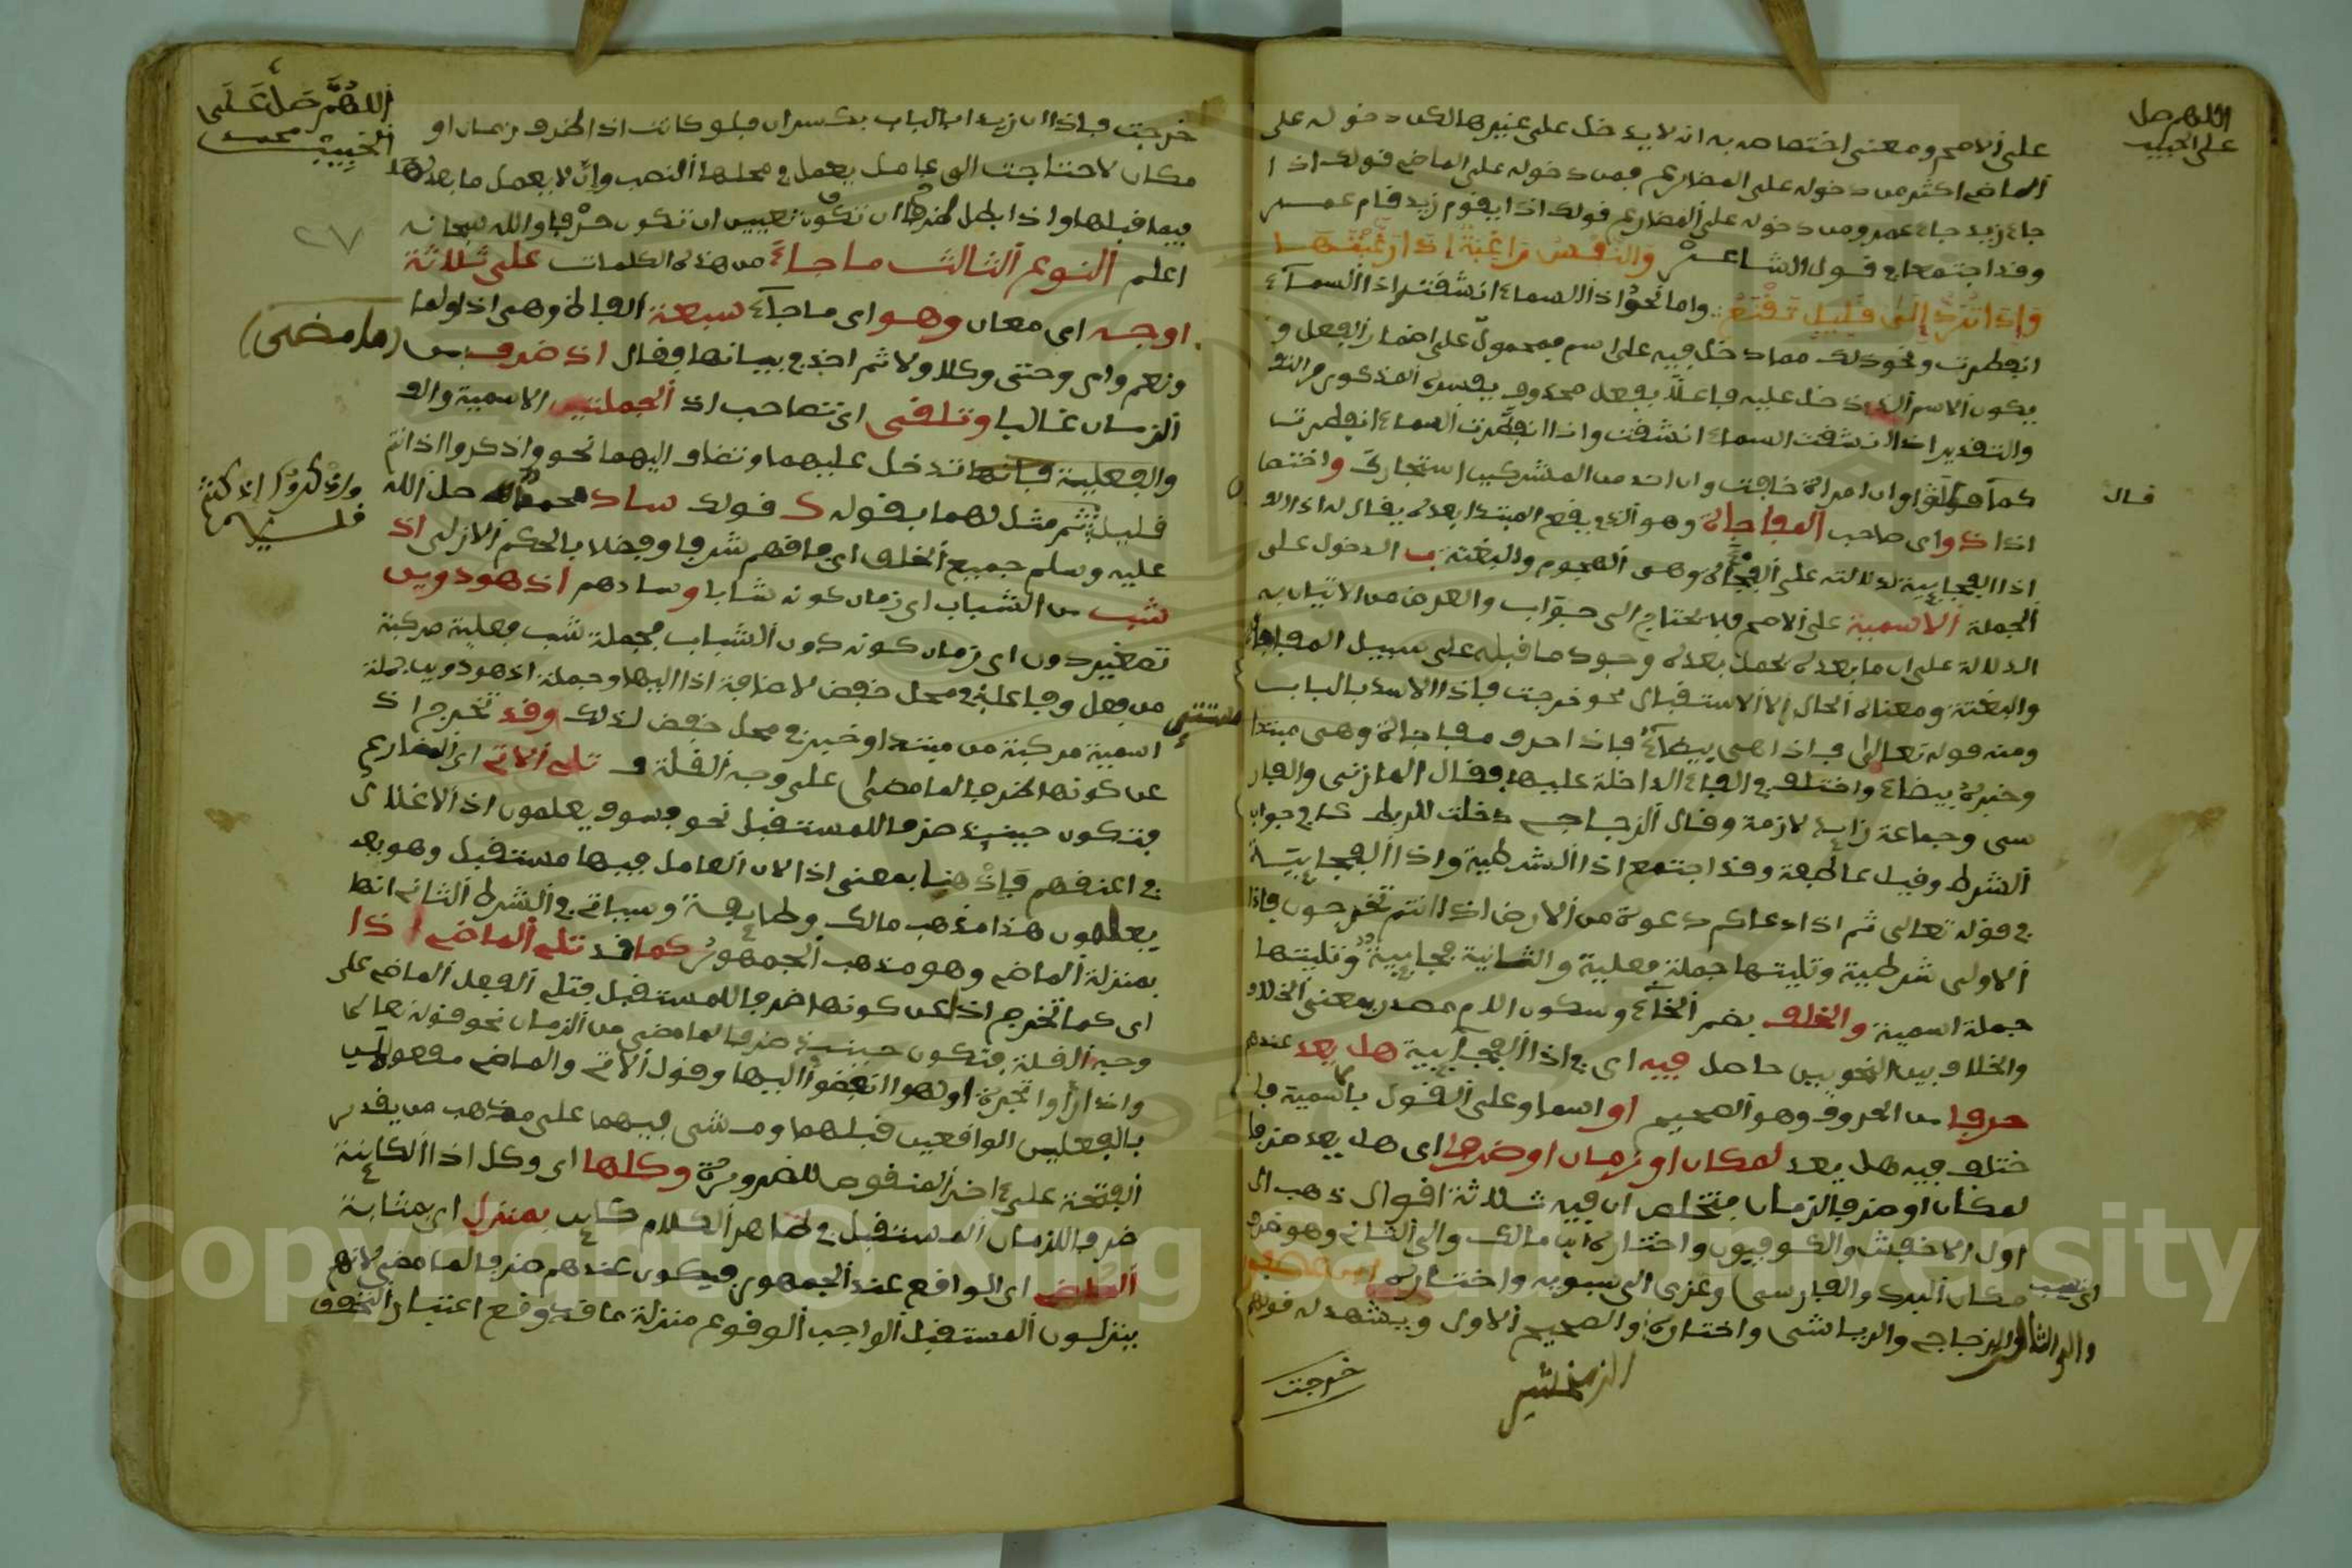 اللهم صل
على الحبيب
على الاصح ومعنى اختصاصه به انه لا يدخل على غيرها لكن دخوله على
الماضى اكثر من دخوله على المضارع فمن دخوله على الماضى قولك اذا
جاء زيد جاء عمرو ومن دخوله على المضارع قولك اذا يقوم زيد قام عمر
وقد اجتمعا فى قول الشاعر وَالنَّفْسُ رَاغِبَةٌ إِذَا رَغَّبْتَهَا
وَإِذَا تُرَدُّ إِلَى قَلِيلٍ تَقْنَعُ واما نحوُ اذا السماء انشقت اذا السماء
انفطرت ونحو ذلك مما دخل فيه على اسم فمحمول على اضمار الفعل و
يكون الاسم الذى دخل عليه فاعلا بفعل محذوف يفسره المذكور
والتقدير اذا انشقت السماء انشقت واذا انفطرت السماء انفطرت
كما قالوا وان امراة خافت وان احد من المشركين استجارك واختصا
قال
اذا ذو اى صاحب المفاجاة وهو الذى يقع المبتدا بعده يقال له اذا
اذا الفجايية لدلالته على الفجأة وهى الهجوم والبغتة بـ الدخول على
الجملة الاسمية على الاصح فلا يحتاج الى جواب والغرض من الاتيان به
الدلالة على ان ما بعده يحصل بعد وجود ما قبله على سبيل المفاجاة
والبغتة ومعناه الحال لا الاستقبال نحو خرجت فاذا الاسد بالباب
ومنه قوله تعالى فاذا هى بيضاء فاذا حرف مفاجاة وهى مبتدا
وخبره بيضاء واختلف فى الفاء الداخلة عليها فقال المازنى والفار
سى وجماعة زايدة لازمة وقال الزجاج دخلت للربط كما فى جواب
الشرط وقيل عاطفة وقد اجتمع اذا الشرطية واذا الفجايية
فى قوله تعالى ثم اذا دعاكم دعوة من الارض اذا انتم تخرجون فاذا
الاولى شرطية وتليتها جملة فعلية والثانية فجايية وتليتها
جملة اسمية والخلف بضم الخاء وسكون اللام مصدر بمعنى الخلاف
والخلاف بين النحويين حاصل فيه اى فى اذا الفجايية هل يعد عندهم
حرفا من الحروف وهو الصحيح او اسما وعلى القول باسمية فا
ختلف فيه هل يعد لمكان او زمان او ظرفا اى هل يعد ظرفا
لمكان او ظرف الزمان فتحلص ان فيه ثلاثة اقوال ذهب الى
اول الاخفش والكوفيون واختاره ابن مالك والى الثانى وهو ظرف
مكان المبرد والفارسى وعزى الى سيبويه واختاره
والى الثالث الزجاج والرياشى واختاره والصحيح الاول ويشهد له قولهم
الزمخشرى
خرجت
اللهم صل على
الحبيب محمد
خرجت فاذا ان زيدا بالباب بكسر ان فلو كانت اذا ظرف زمان او
مكان لاحتاجت الى عامل يعمل فى محلها النصب وإنّ لا يعمل ما بعدها
فيما قبلها واذا بطل ان تكون تعيين ان تكون حرفا والله سبحانه
٢٧
اعلم النوع الثالث ما جاء من هذه الكلمات على ثلاثة
اوجه اى معان وهو اى ما جاء سبعة الفاظ وهى اذ ولما
ونعم واى وحتى وكلا ولا ثم اخذ فى بيانها فقال اذ ظرف من (ما مضى)
الزمان غالبا وتلقى اى تصاحب اذ الجملتين الاسمية
والفعلية فانها تدخل عليهما وتضاف اليهما نحو واذكروا اذ انتم
واذكروا اذ كنتم
قليل ثم مثل لهما بقوله كـ قولك ساد محمد صل الله
عليه وسلم جميع الخلق اى فاقهم شرفا وفضلا بالحكم الازلى اذ
شب من الشباب اى زمان كونه شابا وسادهم اذ هو دوين
تصغير دون اى زمان كونه دون الشباب فجملة شب فعلية مركبة
من فعل وفاعله فى محل خفض لاضافة اذ اليها وجملة اذ هو دوين جملة
اسمية مركبة من مبتدا وخبر فى محل خفض لذلك وقد تخرج اذ
عن كونها ظرفا لما مضى على وجه القلة فـ تلى الاتى اى المضارع
فتكون حينيذ ظرفا للمستقبل نحو فسوف يعلمون اذ الاغلال
فى اعنقهم فإذْ هنا بمعنى اذا لان العامل فيها مستقبل وهو
يعلمون هذا مذهب مالك وطايفة وسياتى فى الشرط الثانى انها
بمنزلة الماضى وهو مذهب الجمهور كما قد تلى الماضى اذا
اى كما تخرج اذا عن كونها ظرفا للمستقبل فتلى الفعل الماضى على
وجه القلة فتكون حينيذ ظرفا لما مضى من الزمان نحو قوله تعالى
واذا رأوا تجرة او لهوا انفضوا اليها وقول الاتى والماضى مفعولين
بالفعلين الواقعين قبلهما ومشى فيهما على مذهب من يقدر
الفتحة على اخر المنقوص للضرورة وكلها اى وكل اذا الكاينة
ظرفا للزمان المستقبل فى ظاهر الكلام كاين بمنزل اى بمثابة
الماضى اى الواقع عند الجمهور فيكون عندهم ظرفا لما مضى لانهم
ينزلون المستقبل الواجب الوقوع منزلة ما قد وقع اعتبارا
Copyright © King Saud University